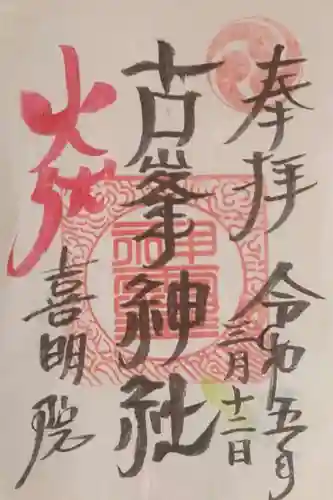 奉拝
令和五年
三月十二日
古峯神社
喜明院